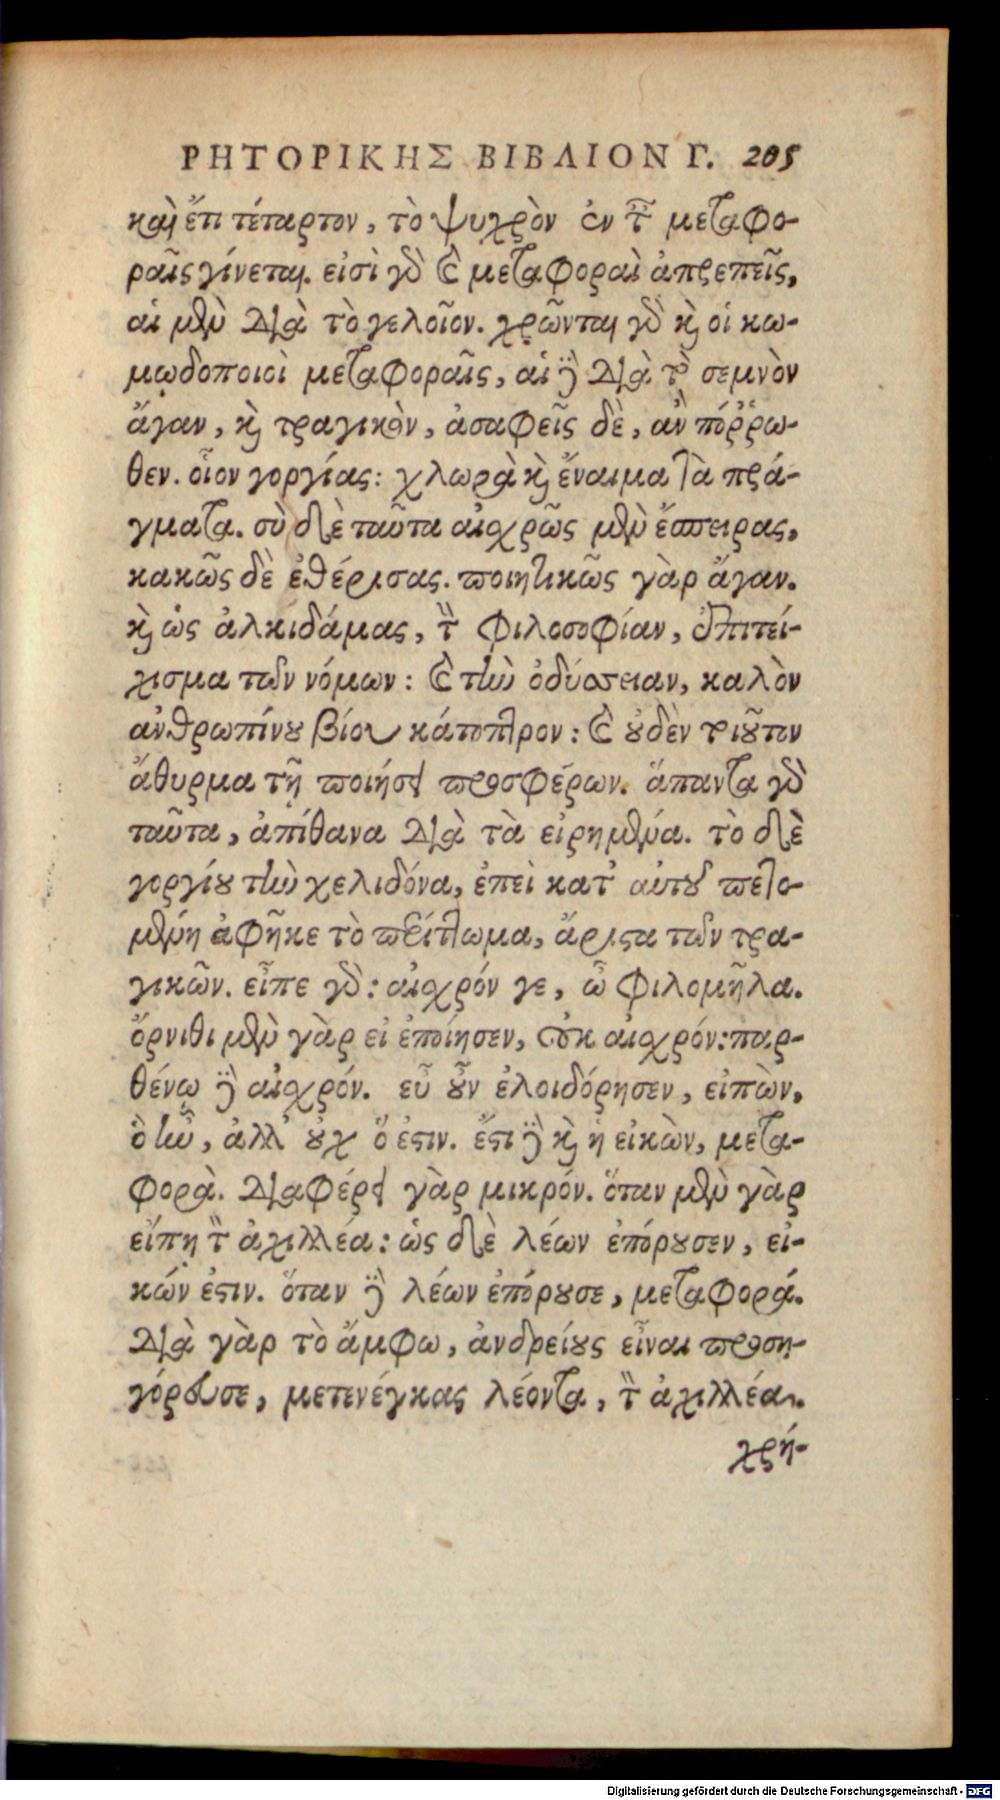 ΡΗΤΟΡΙΚΗΣ ΒΙΒΛΙΟΝ Γ. 205
καὶ ἔτι τέταρτον, τὸ ψυχρὸν ἐν ταῖς μεταφο-
ραῖς γίνεται. εἰσὶ γὰρ καὶ μεταφοραὶ ἀπρεπεῖς,
αἱ μὲν διὰ τὸ γελοῖον. χρῶνται γὰρ καὶ οἱ κω-
μῳδοποιοὶ μεταφοραῖς, αἱ δὲ διὰ τὸ σεμνὸν
ἄγαν, καὶ τραγικὸν, ἀσαφεῖς δὲ, ἂν πόῤῥω-
θεν. οἷον γοργίας: χλωρὰ καὶ ἔναιμα τὰ πρά-
γματα. σὺ δὲ ταῦτα αἰσχρῶς μὲν ἔσπειρας,
κακῶς δὲ ἐθέρισας. ποιητικῶς γὰρ ἄγαν.
καὶ ὡς ἀλκιδάμας, τὴν φιλοσοφίαν, ἐπιτεί-
χισμα τῶν νόμων: καὶ τὴν ὀδύσσειαν, καλὸν
ἀνθρωπίνου βίου κάτοπτρον: καὶ οὐδὲν τοιοῦτον
ἄθυρμα τῇ ποιήσει προσφέρων. ἅπαντα γὰρ
ταῦτα, ἀπίθανα διὰ τὰ εἰρημένα. τὸ δὲ
γοργίου τὴν χελιδόνα, ἐπεὶ κατ' αὐτοῦ πετο-
μένη ἀφῆκε τὸ περίττωμα, ἄριστα τῶν τρα-
γικῶν. εἶπε γὰρ: αἰσχρόν γε, ὦ φιλομῆλα.
ὄρνιθι μὲν γὰρ εἰ ἐποίησεν, οὐκ αἰσχρόν: παρ-
θένῳ δὲ αἰσχρόν. εὖ οὖν ἐλοιδόρησεν, εἰπὼν,
ὃ ἦν, ἀλλ' οὐχ ὅ ἐστιν. ἔστι δὲ καὶ ἡ εἰκὼν, μετα-
φορὰ. διαφέρει γὰρ μικρόν. ὅταν μὲν γὰρ
εἴπῃ τὸν ἀχιλλέα: ὡς δὲ λέων ἐπόρουσεν, εἰ-
κών ἐστιν. ὅταν δὲ λέων ἐπόρουσε, μεταφορά.
διὰ γὰρ τὸ ἄμφω, ἀνδρείους εἶναι προση-
γόρευσε, μετενέγκας λέοντα, τὸν ἀχιλλέα.
χρή-
Digitalisierung gefördert durch die Deutsche Forschungsgemeinschaft - DFG